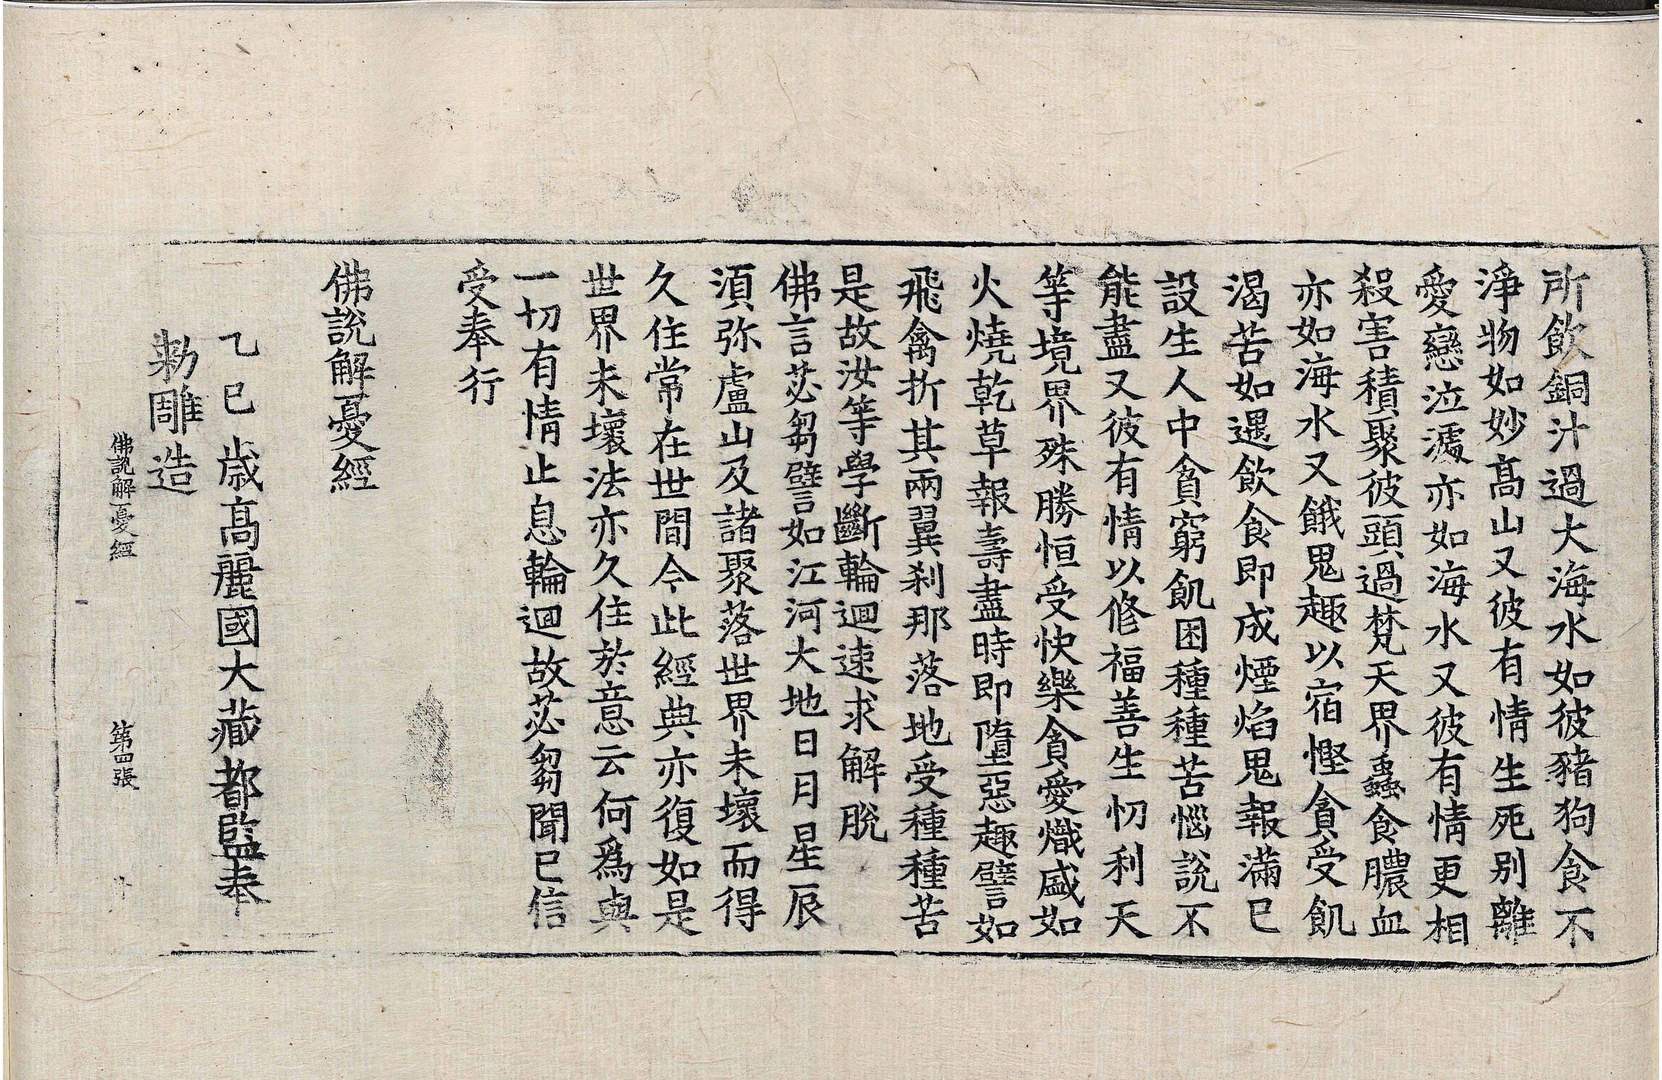 所飲銅汁過大海水如彼豬狗食不
淨物如妙髙山又彼有情生死别離
愛戀泣淚亦如海水又彼有情更相
殺害積聚彼頭過梵天界蟲食膿血
亦如海水又餓鬼趣以宿慳貪受飢
渴苦如遇飲食即成煙焰鬼報滿已
設生人中貪窮飢困種種苦惱說不
能盡又彼有情以修福善生忉利天
等境界殊勝恒受快樂貪愛熾盛如
火燒乾草報壽盡時即墮惡趣譬如
飛禽折其兩翼刹那落地受種種苦
是故汝等學斷輪迴速求解脫
佛言苾芻譬如江河大地日月星辰
湏弥盧山及諸聚落世界未壞而得
久住常在世間今此經典亦復如是
世界未壞法亦久住於意云何爲與
一切有情止息輪迴故苾芻聞已信
受奉行
佛說解憂經
乙巳歳髙麗國大藏都監奉
勑雕造
佛說解憂經 第四張